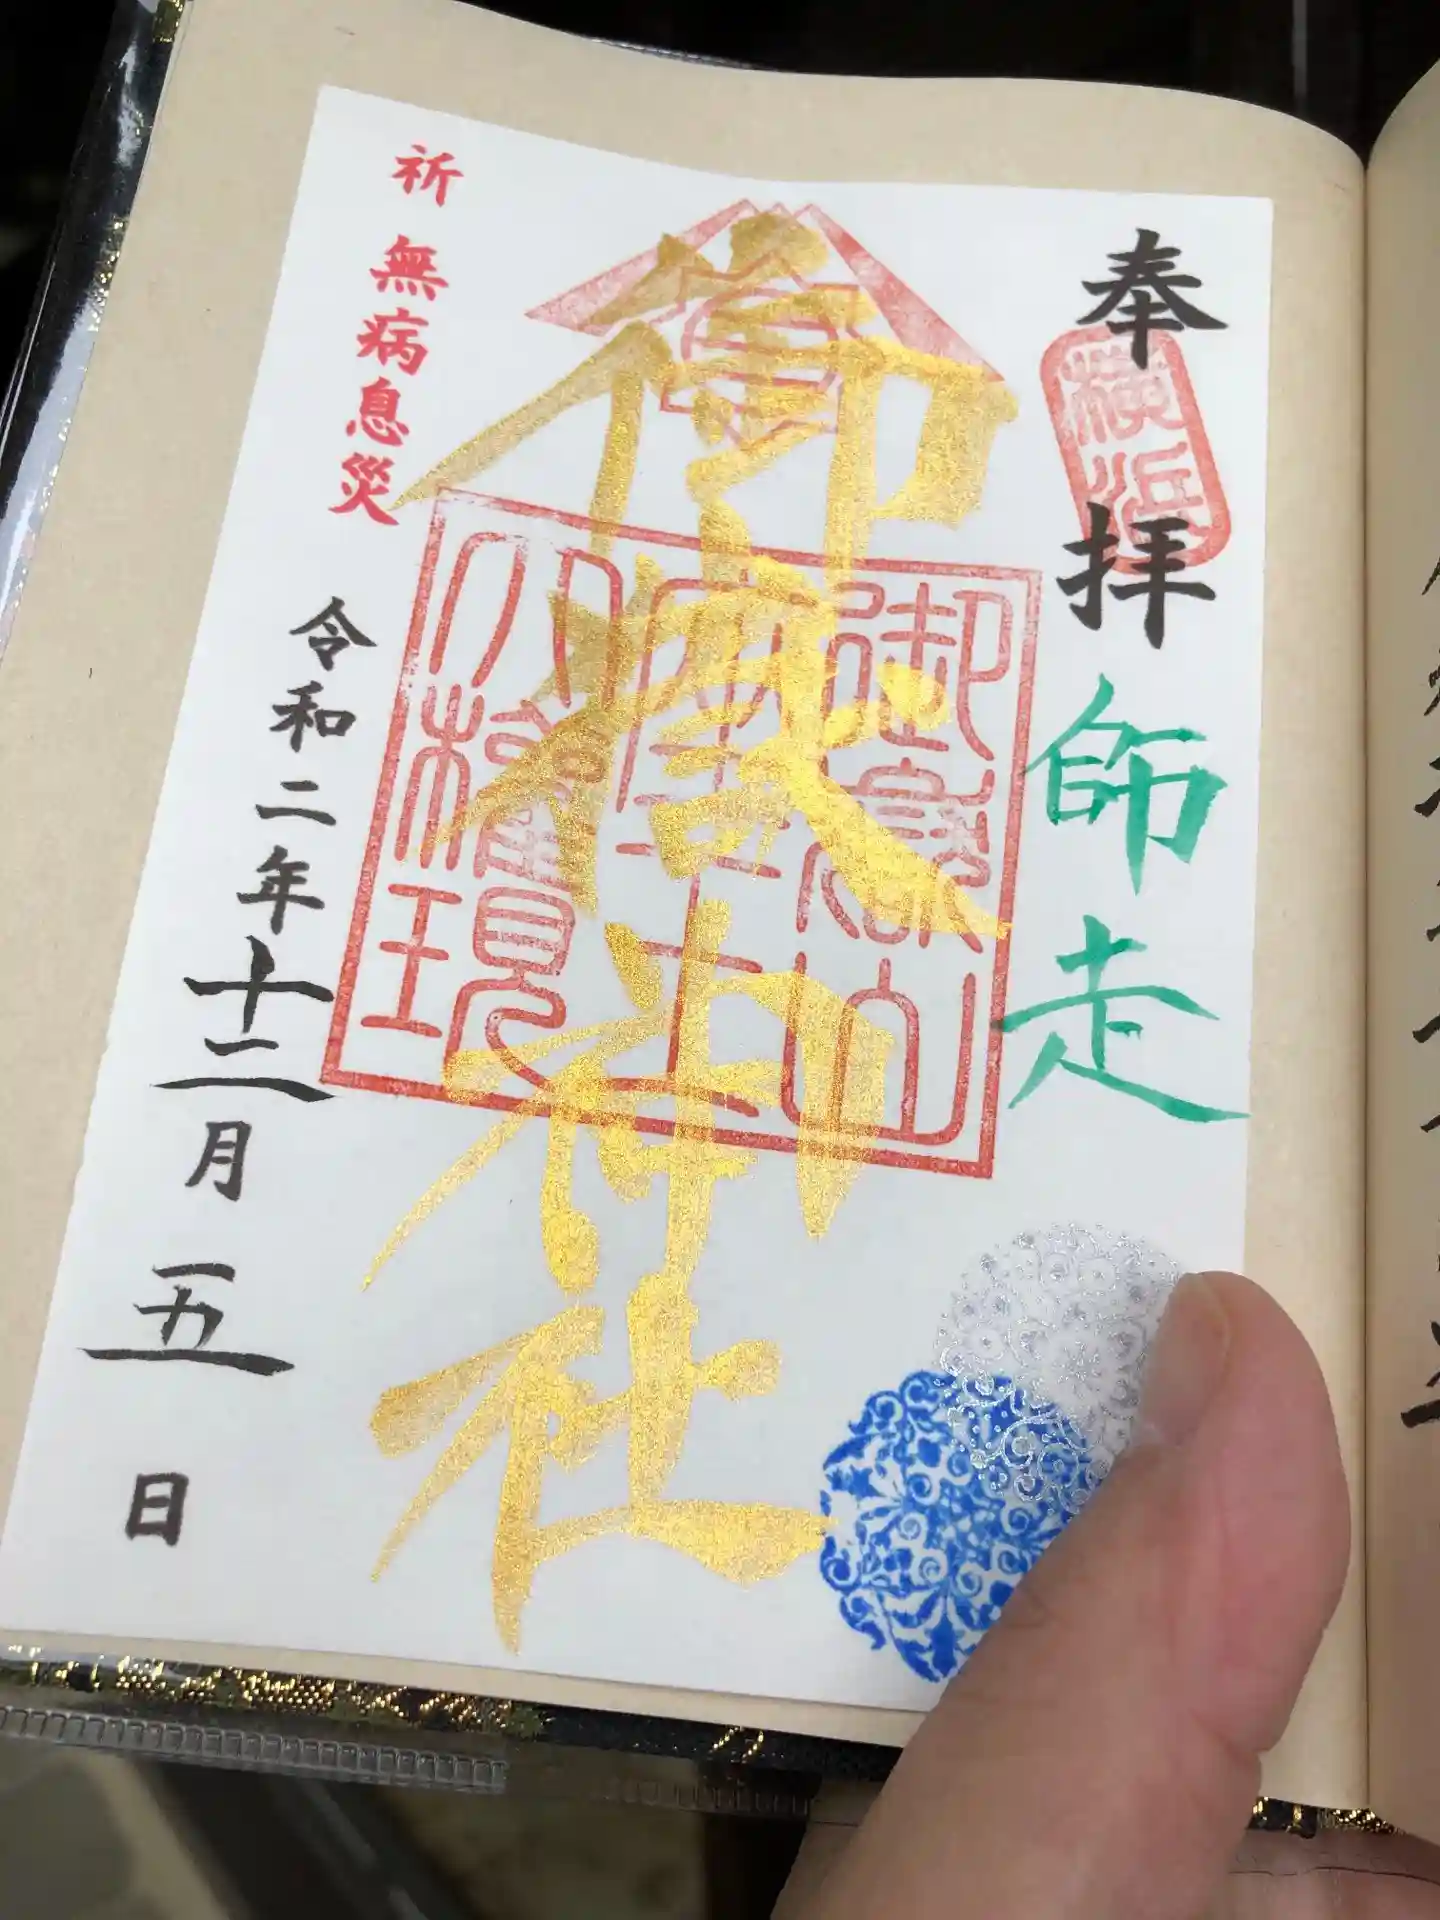 奉拝
横浜
師走
御嶽神社
御嶽山
祈 無病息災
令和二年十二月五日